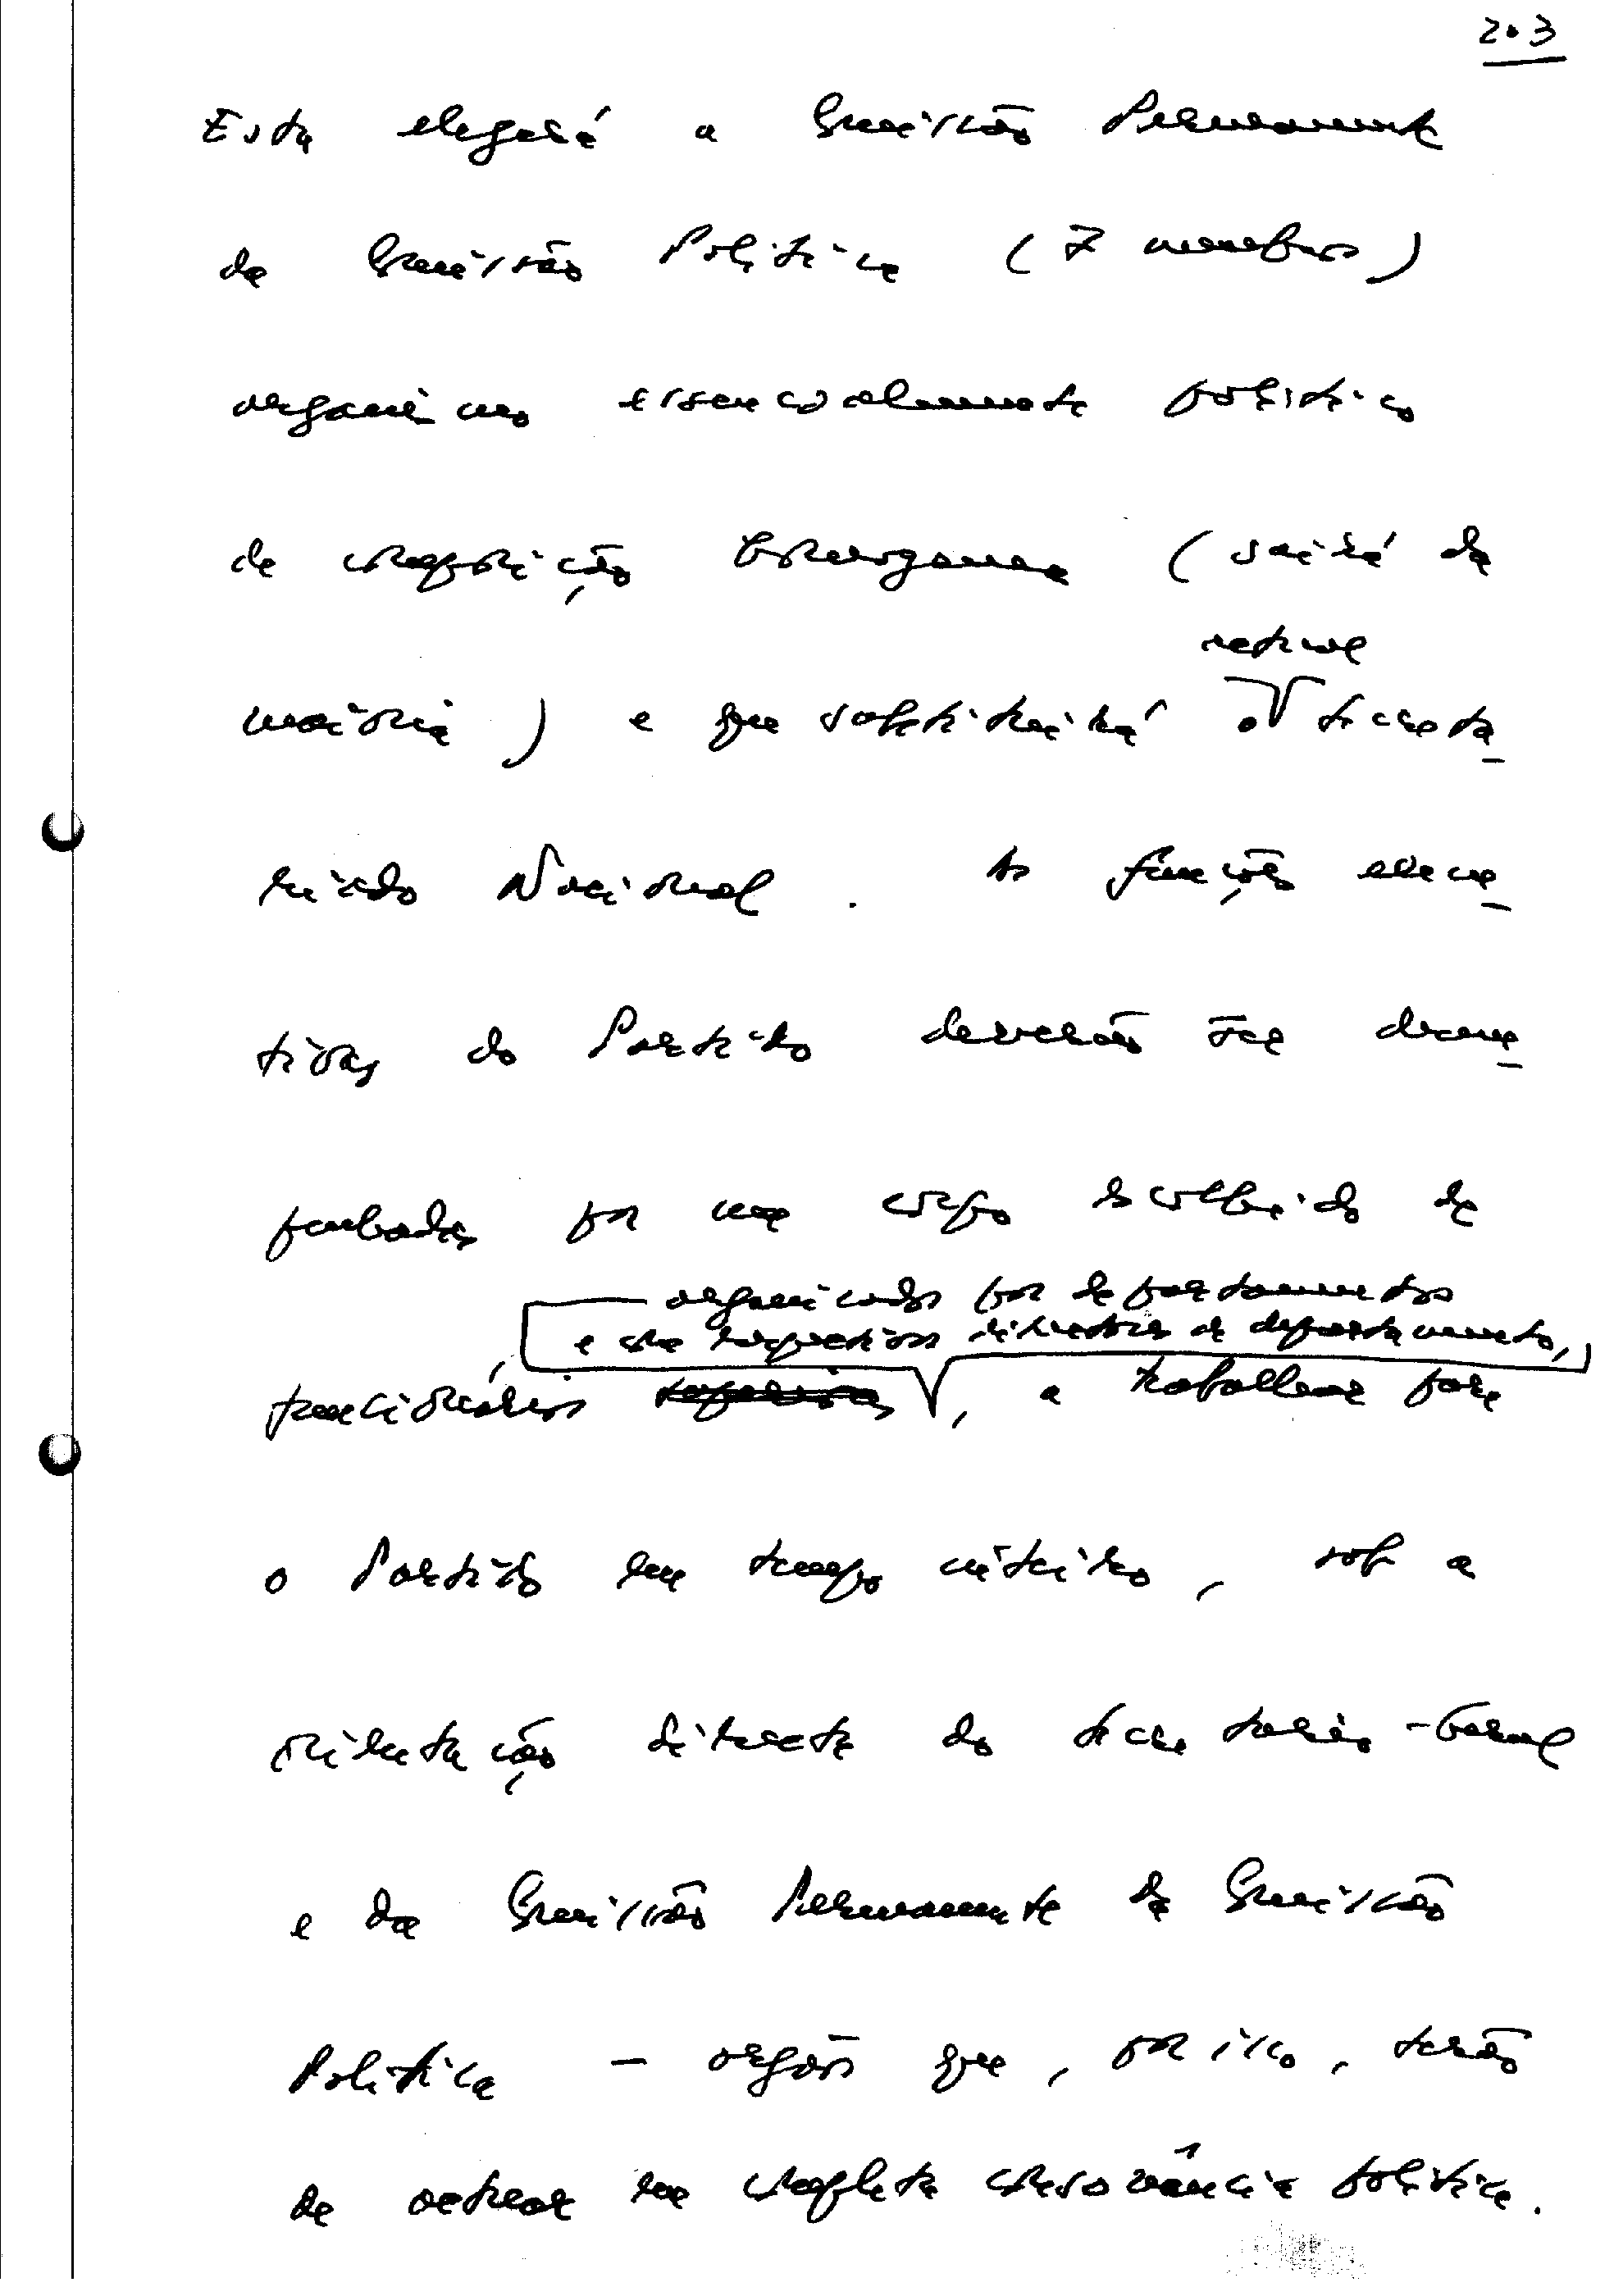 203
Esta elegerá a Comissão Permanente
da Comissão Política (7 membros)
organismo essencialmente político
de composição homogénea (sairá da
actual
maioria) e que substituirá o Secreta_
riado Nacional. As funções execu_
tivas do Partido deverão ser desem_
penhadas por um corpo escolhido de
organizados por departamentos
e com respectivos directores de departamento,
funcionários, a trabalhar para
o Partido em tempo inteiro, sob a
orientação directa do Secretário-Geral
e da Comissão Permanente da Comissão
Política - orgãos que, por isso, terão
de actuar em completa consonância política.